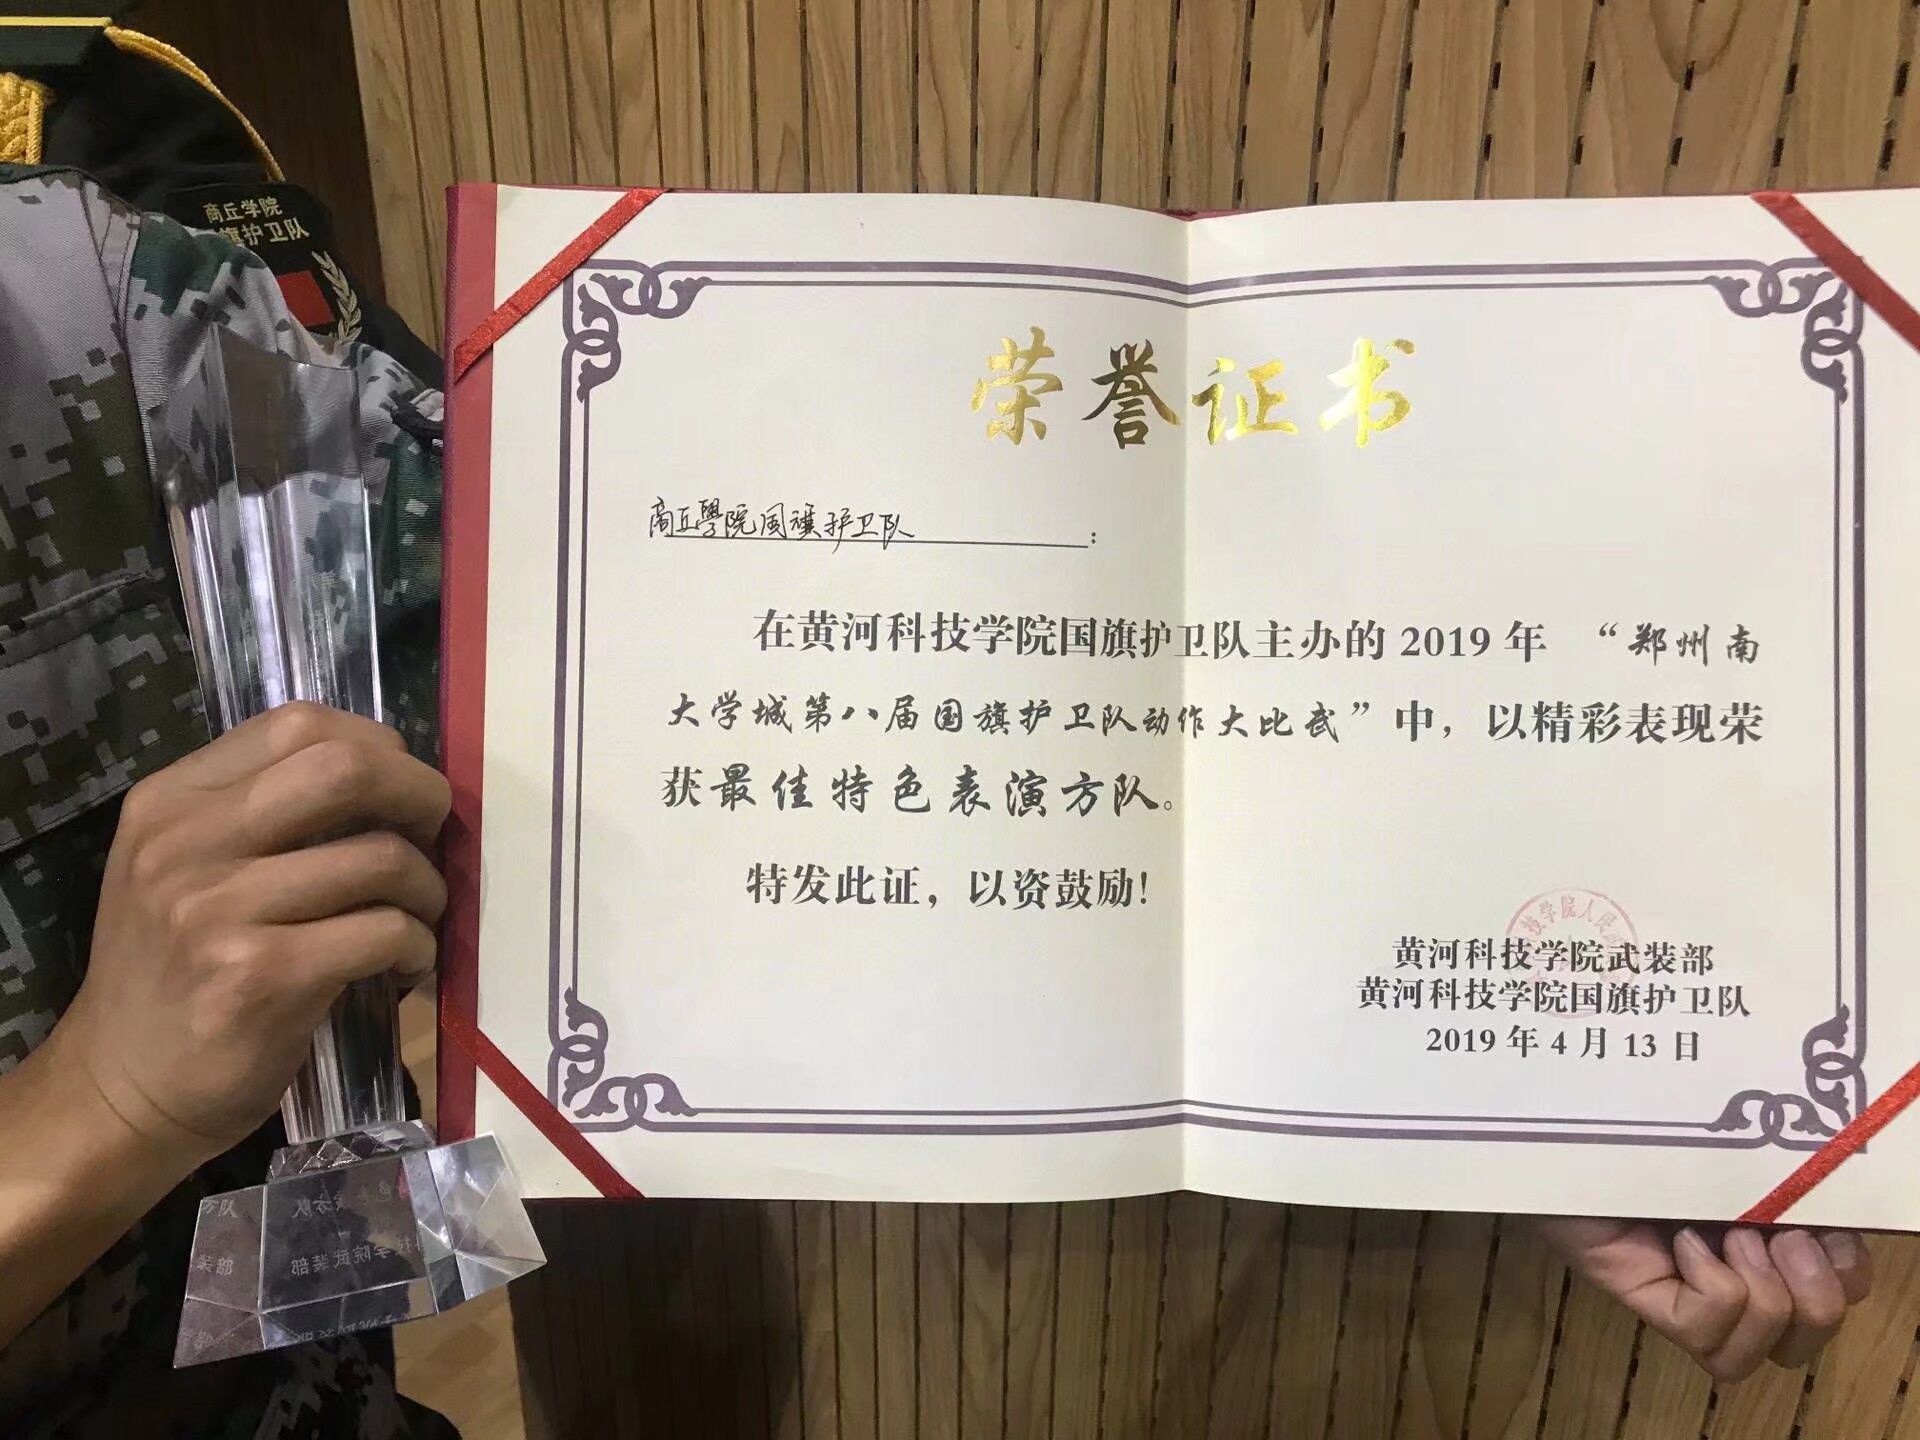 商丘学院
旗护卫队
荣誉证书
商丘學院国旗护卫队：
在黄河科技学院国旗护卫队主办的 2019 年 “郑州南
大学城第八届国旗护卫队动作大比武”中，以精彩表现荣
获最佳特色表演方队。
特发此证，以资鼓励！
技学院人民
黄河科技学院武装部
黄河科技学院国旗护卫队
2019 年 4 月 13 日
方队
装部
学院武装部